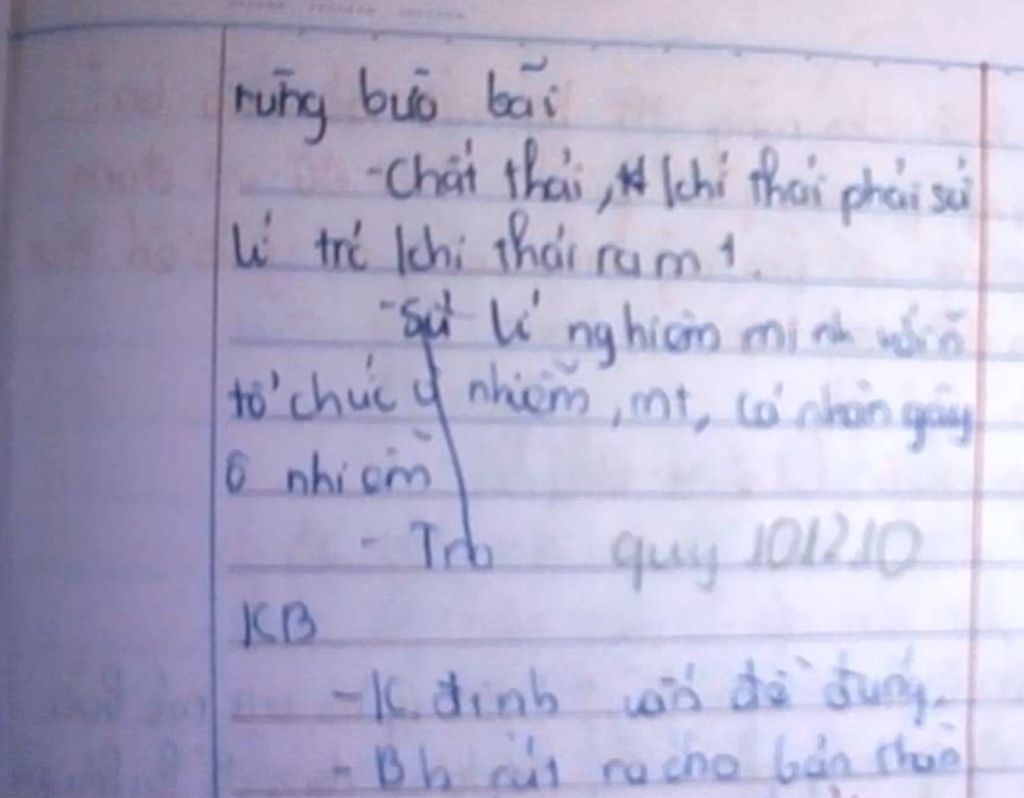 rừng bừa bãi
- Chất thải, khí thải phải sử
lí trc khi thải ra mt.
- Sử lí nghiêm minh với n
tổ chức ý nhiễm, mt, cá nhân gây
ô nhiễm
- Trb quy 101210
KB
- K. định vấn đề đúng.
- Bh rút ra cho bản thân